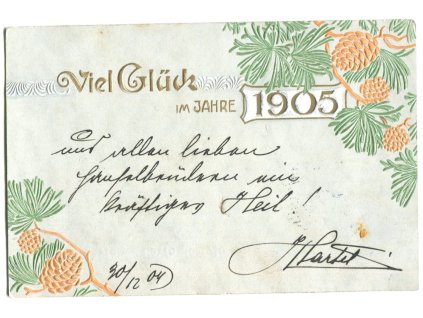 Viel Glück
IM JAHRE 1905
und allen lieben
ein
kräftiges Heil!
30/12 04